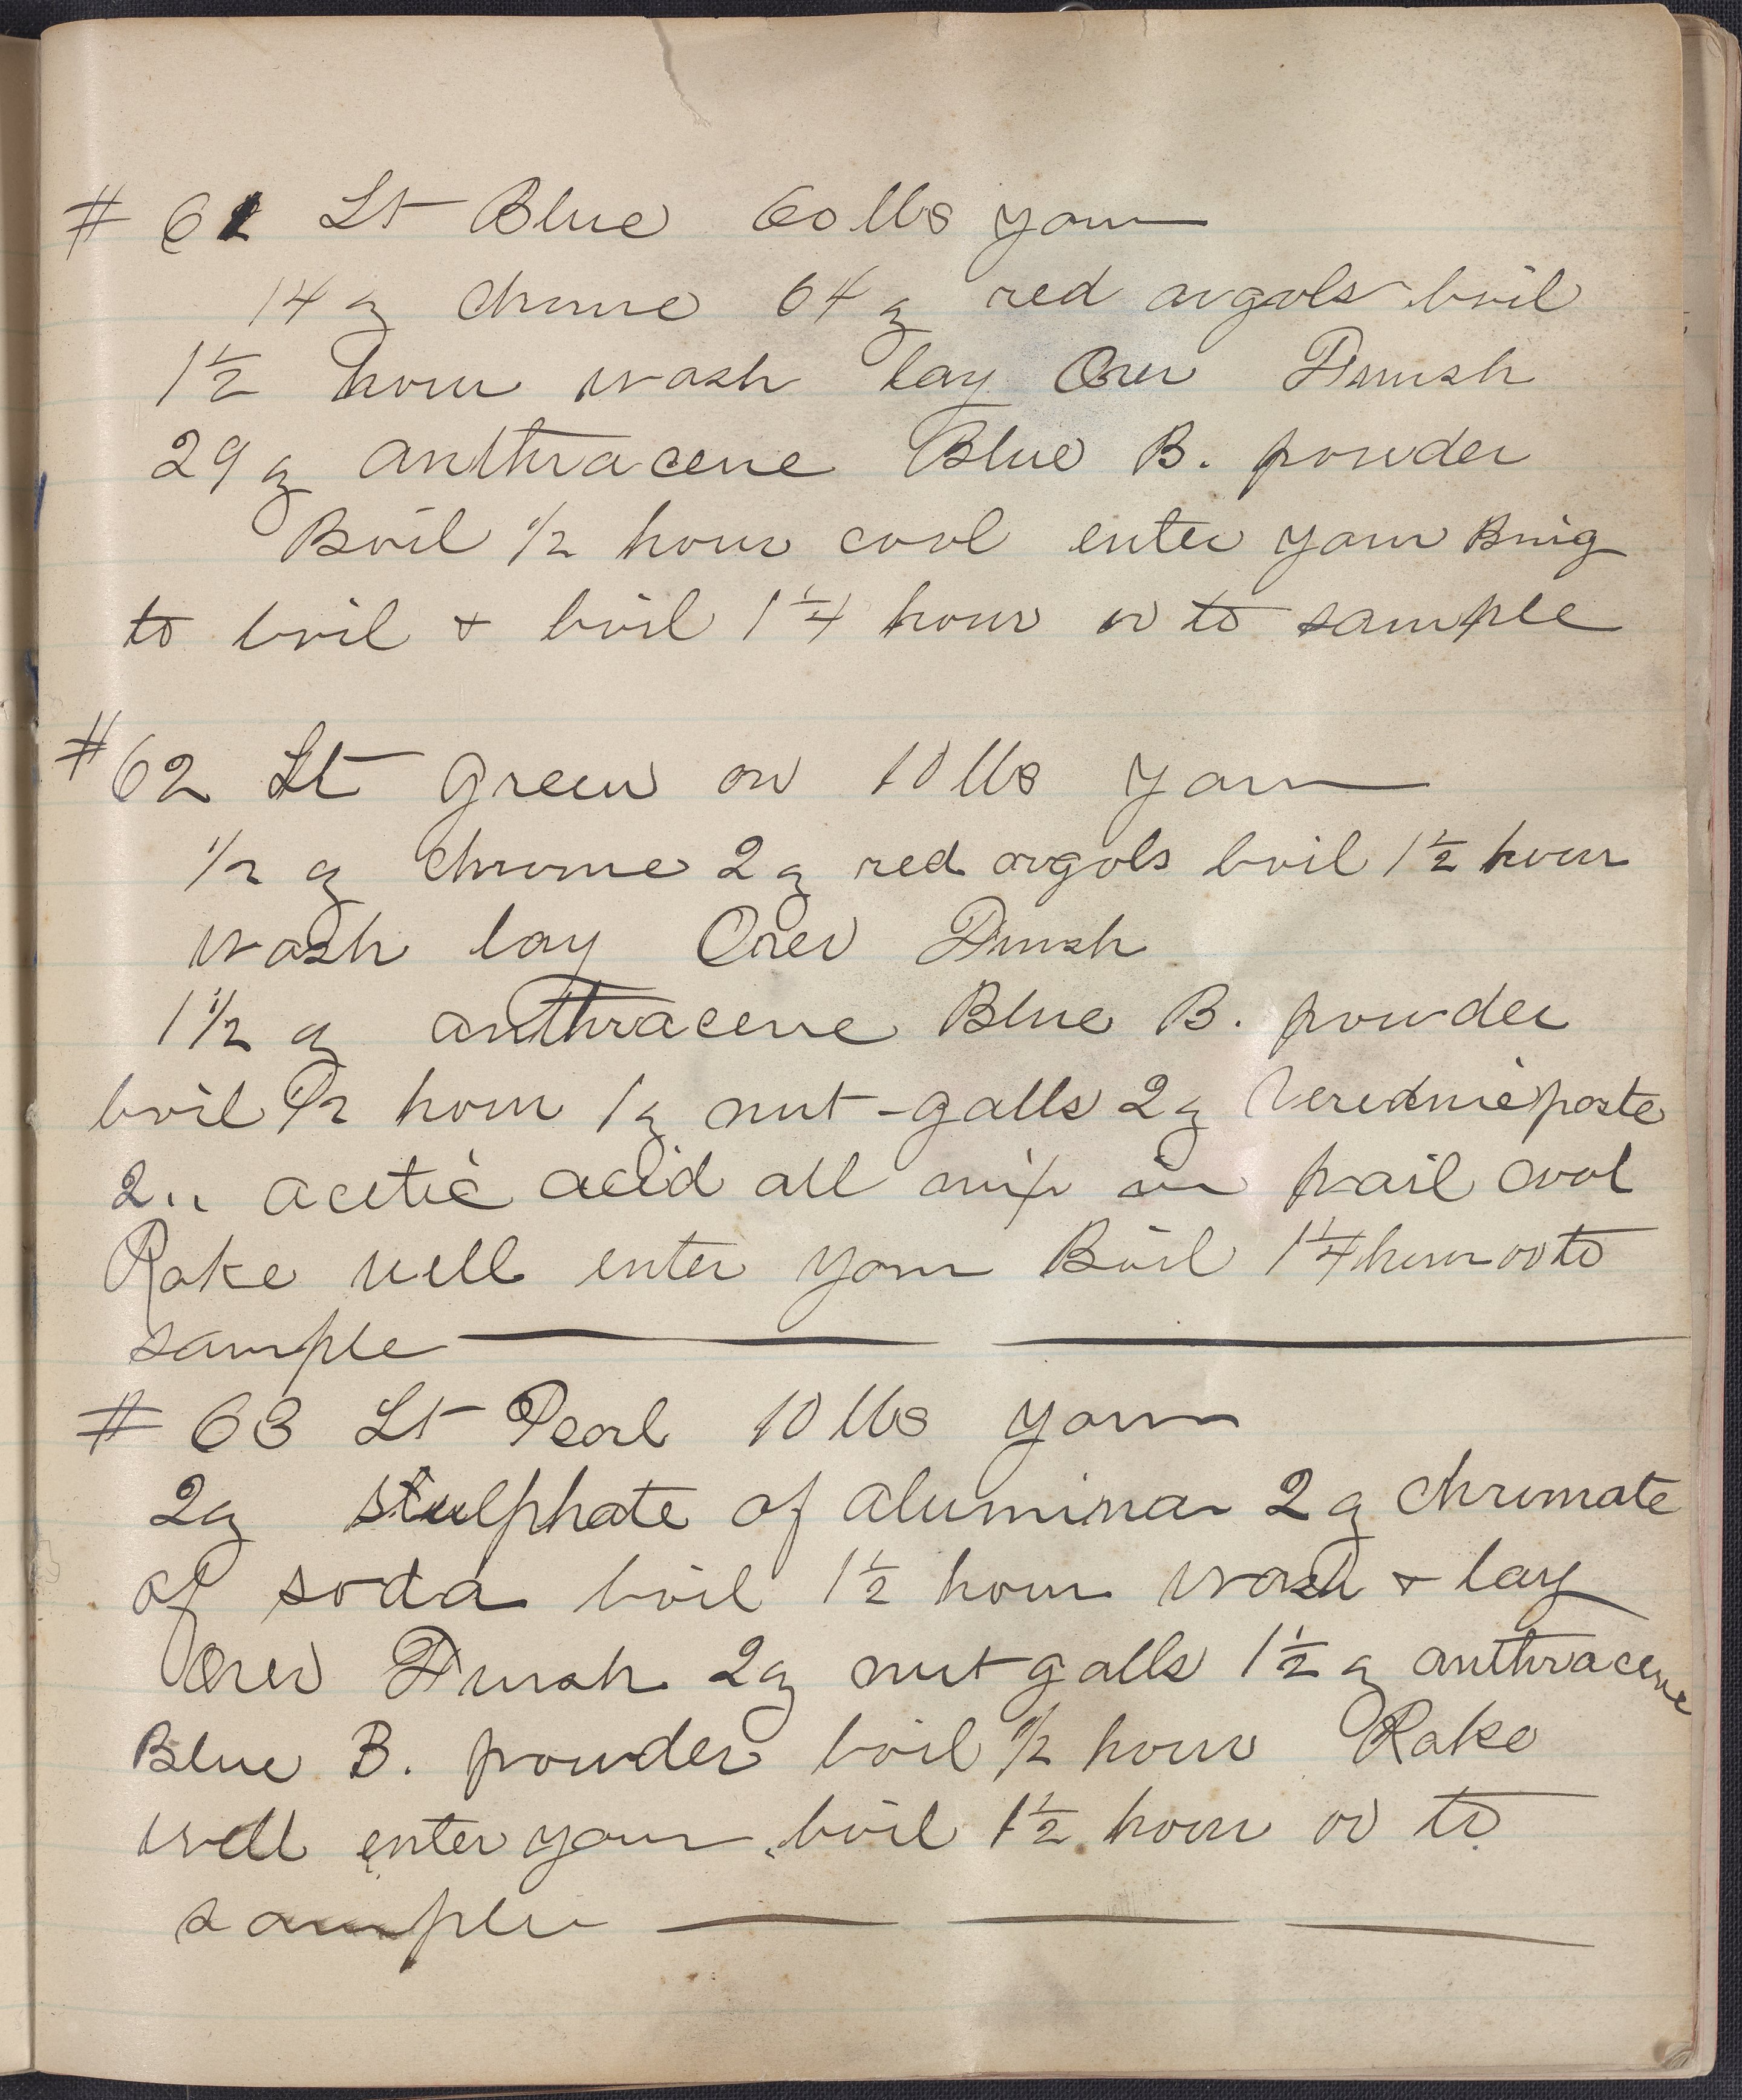 # 61 Lt Blue 60 lbs yarn
14 oz chrome 64 oz red argols boil
1 1/2 hour wash lay Over Finish
29 oz anthracene Blue B. powder
Boil 1/2 hour cool enter yarn Bring
to boil & boil 1 1/4 hour or to sample
# 62 Lt green on 10 lbs yarn
1/2 oz chrome 2 oz red argols boil 1 1/2 hour
wash lay Over Finish
1 1/2 oz anthracene Blue B. powder
boil 1/2 hour 1 oz nut-galls 2 oz paste
2 " acetic acid all mix in pail cool
Rake well enter yarn Boil 1 1/4 hour or to
sample
# 63 Lt Pearl 10 lbs yarn
2 oz sulphate of alumina 2 oz chromate
of soda boil 1 1/2 hour wash & lay
Over Finish 2 oz nut galls 1 1/2 oz anthracene
Blue B. powder boil 1/2 hour Rake
well enter yarn boil 1 1/2 hour or to
sample